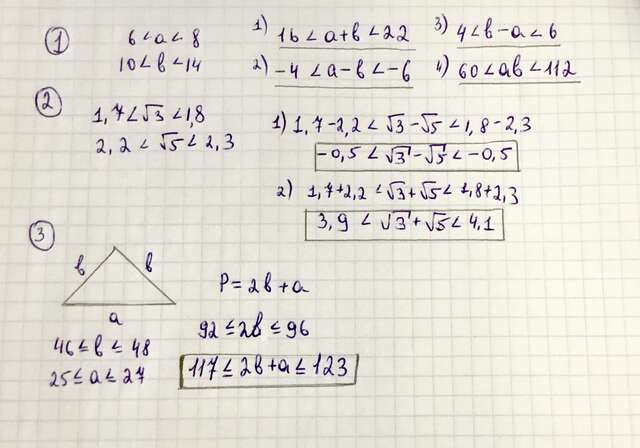 1
6 < a < 8
10 < b < 14
1) 16 < a+b < 22
2) -4 < a-b < -6
3) 4 < b-a < 6
4) 60 < ab < 112
2
1,7 < √3 < 1,8
2,2 < √5 < 2,3
1) 1,7-2,2 < √3-√5 < 1,8-2,3
-0,5 < √3-√5 < -0,5
2) 1,7+2,2 < √3+√5 < 1,8+2,3
3,9 < √3+√5 < 4,1
3
в в
a
46 ≤ в ≤ 48
25 ≤ a ≤ 27
P = 2в + a
92 ≤ 2в ≤ 96
117 ≤ 2в+a ≤ 123